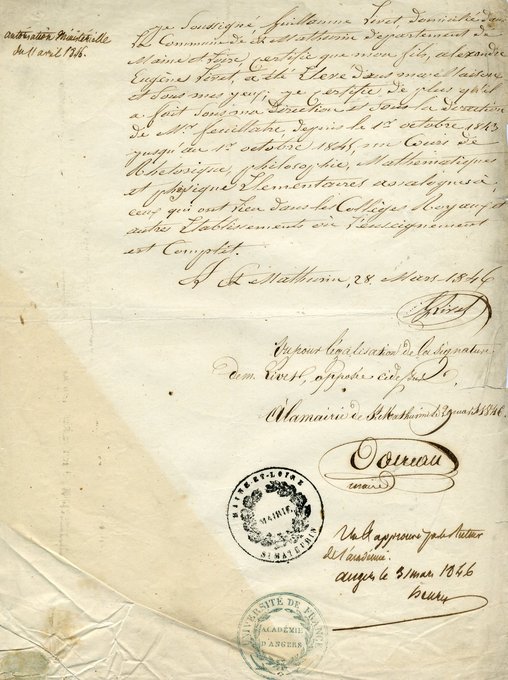 autorisation Ministerielle
du 11 avril 1846.
Je Soussigné Guillaume Livet, domicilié dans
la Commune de St Mathurin département de
Maine et Loire, certifie que mon fils, alexandre
Eugène Livet, a été Elevé dans ma Maison
et Sous mes yeux; je certifie de plus qu'il
a fait Sous ma Direction et Sous la direction
de Mr feuillatre, depuis le 1er octobre 1843
jusqu'au 1er octobre 1845, un Cours de
Rhétorique, philosophie, Mathématiques
et physique Elémentaires analogues à
ceux qui ont lieu dans les Collèges Royaux et
autres Etablissements où l'enseignement
est Complet.
A St Mathurin, 28 Mars 1846
Livet
Vu pour légalisation de la Signature
de m. Livet, apposée ci dessus
A la mairie de St Mathurin le 29 mars 1846.
maire
MAINE-ET-LOIRE
MAIRIE
ST MATHURIN
Vu et approuvé par le Recteur
de l'académie.
angers le 31 mars 1846
henry
UNIVERSITÉ DE FRANCE
ACADÉMIE
D'ANGERS